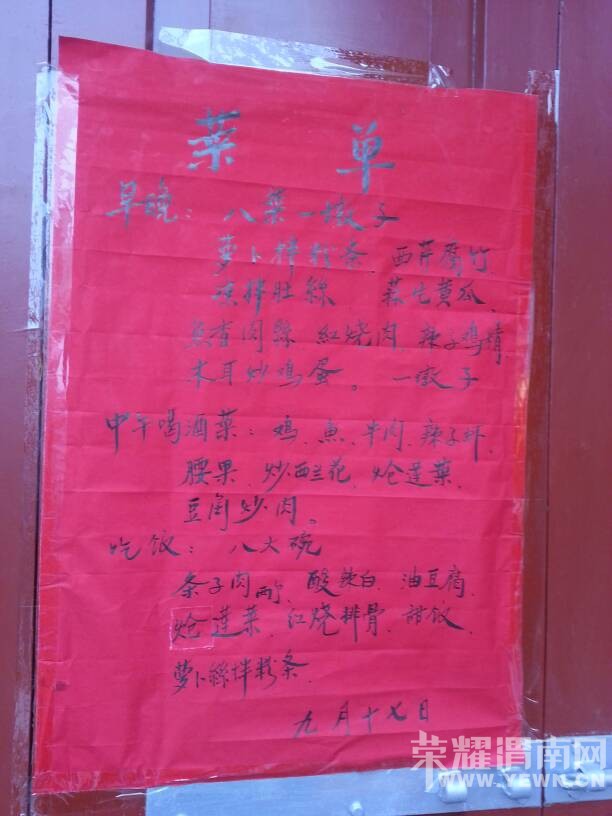 菜 单
早晚：八菜一墩子
萝卜拌粉条、西芹腐竹
凉拌肚絲 蒜片黄瓜、
魚香肉絲、紅烧肉、辣子鸡精
木耳炒鸡蛋。一墩子
中午喝酒菜：鸡、魚、牛肉、辣子虾、
腰果、炒西兰花、炝莲菜、
豆角炒肉。
吃饭：八大碗
条子肉两、酸辣白、油豆腐
炝莲菜、红烧排骨、甜饭、
萝卜絲拌粉条、
九月十七日
荣耀渭南网
WWW.YEWN.CN